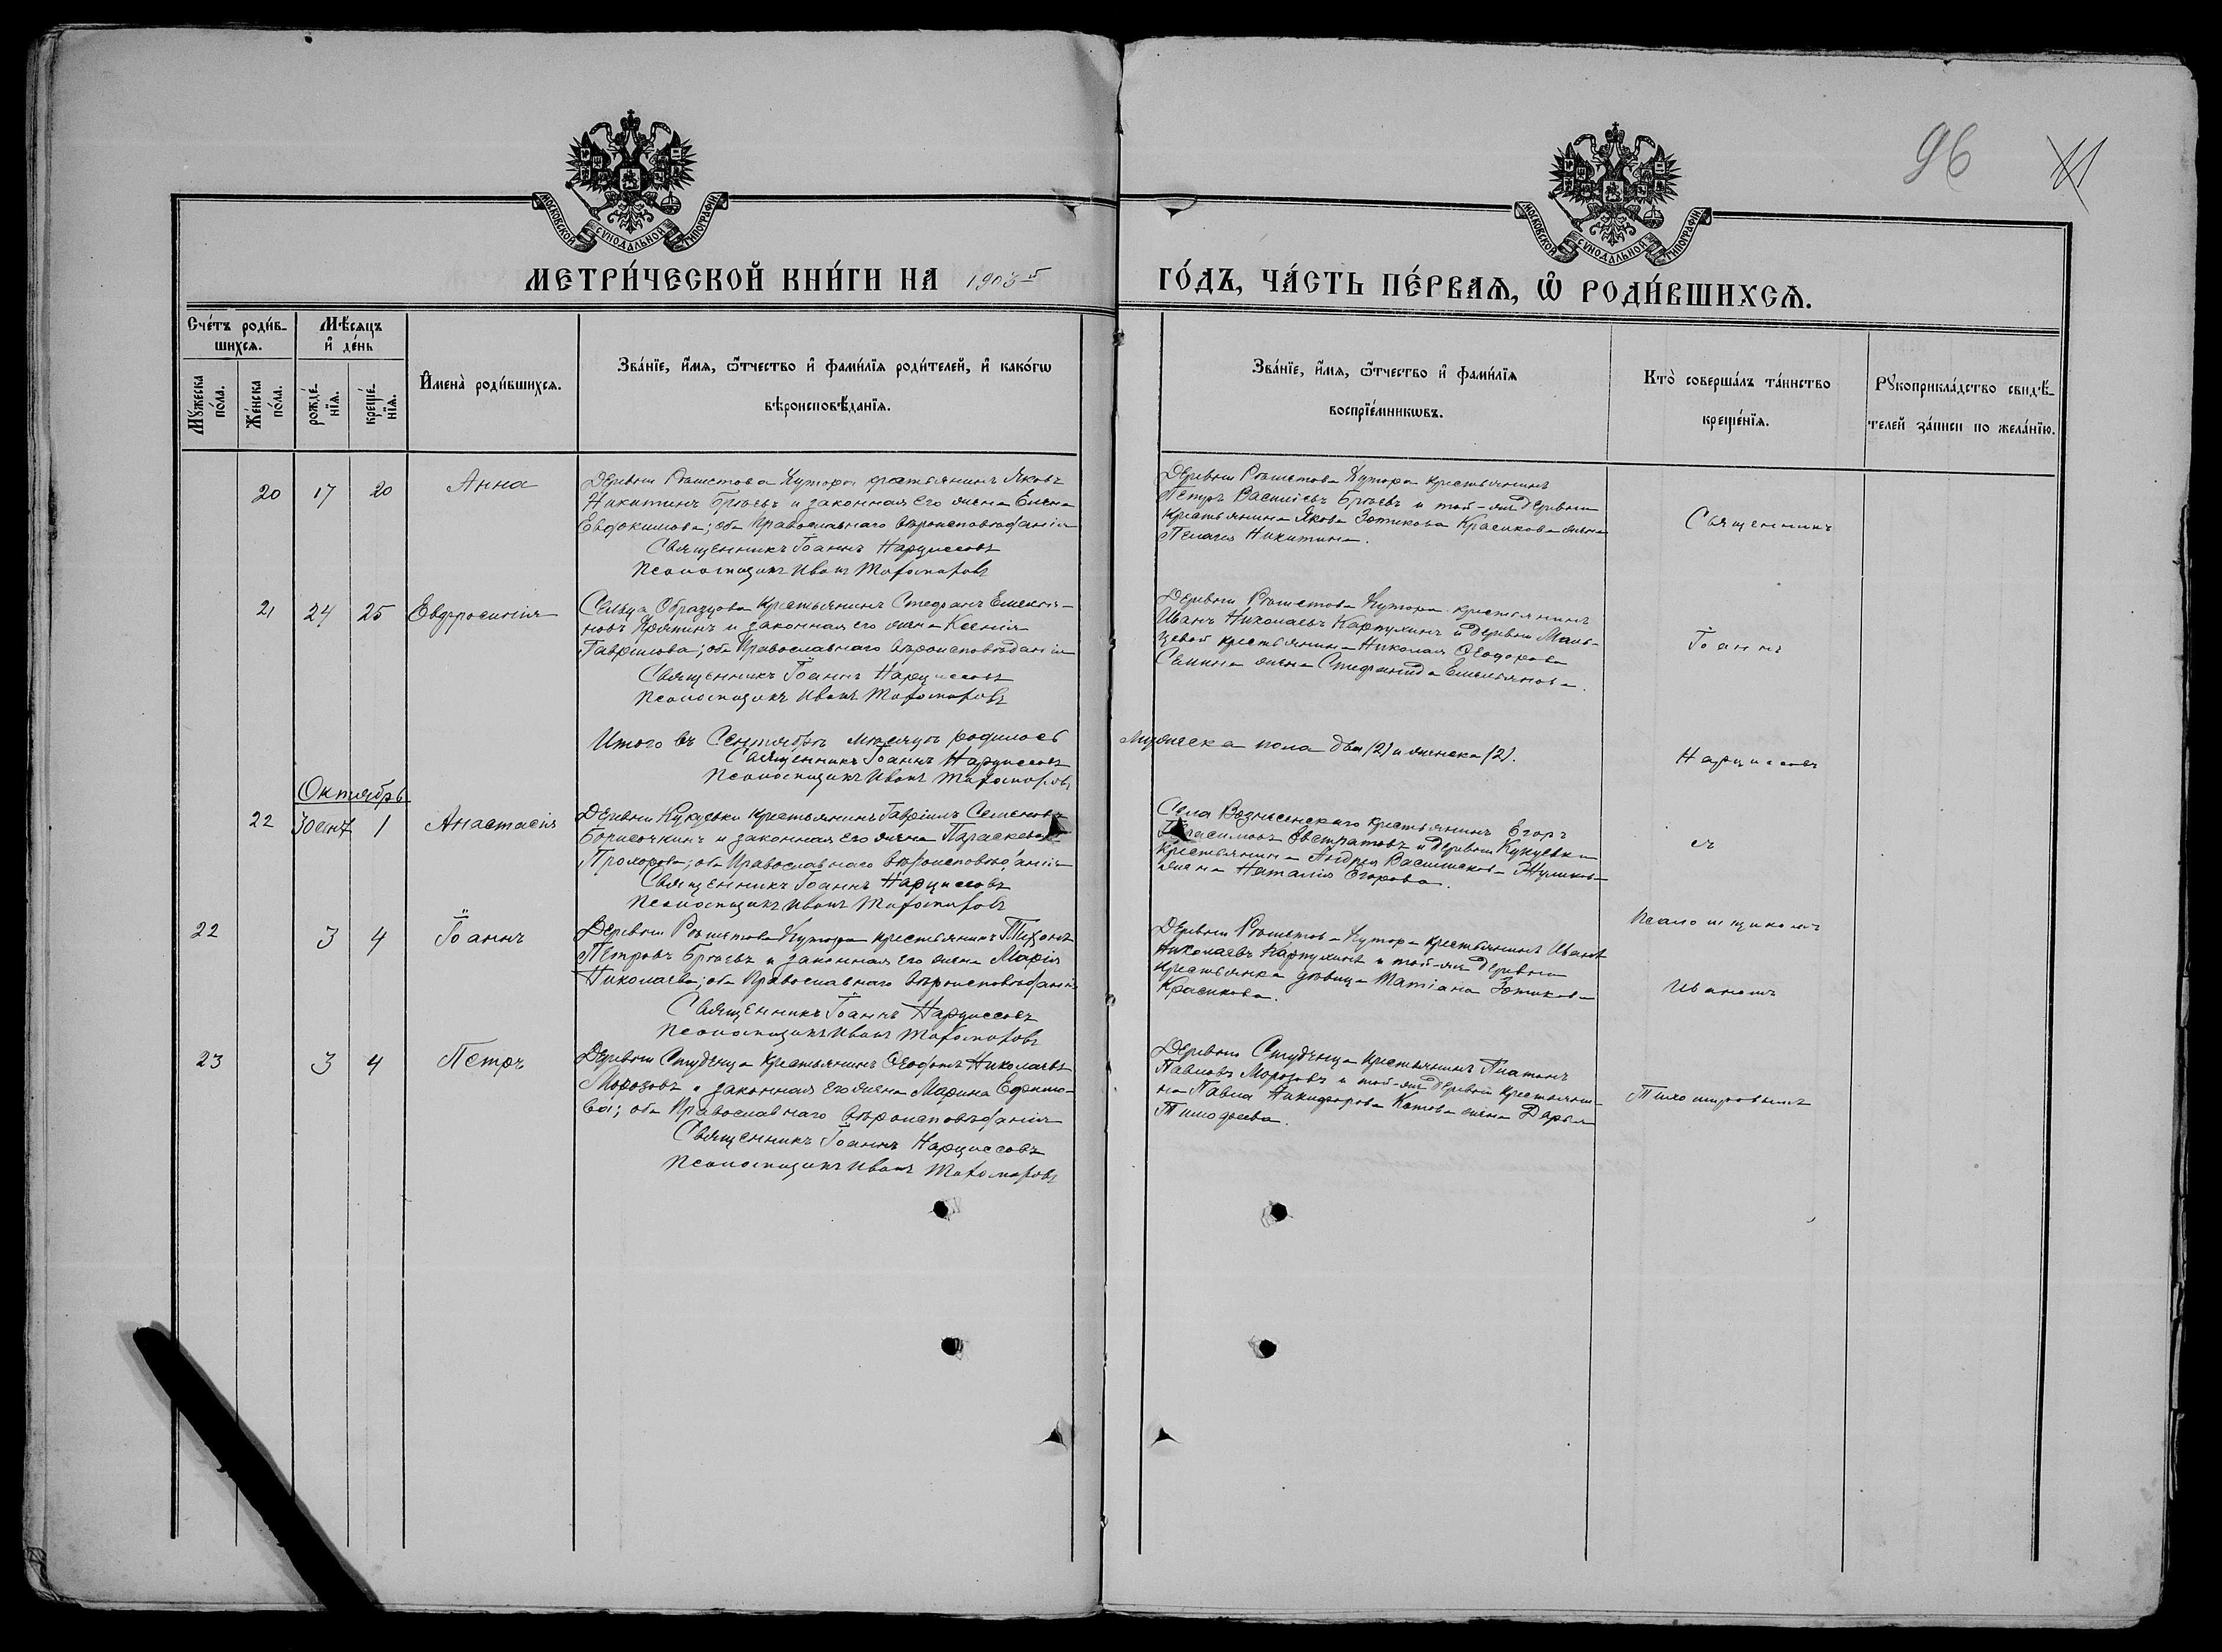 96
11
МОСКОВСКОЙ СѴНОДАЛЬНОЙ ТИПОГРАФІИ
МОСКОВСКОЙ СѴНОДАЛЬНОЙ ТИПОГРАФІИ
МЕТРИ́ЧЕСКОЙ КНИ́ГИ НА 1903й ГО́ДЪ, ЧА́СТЬ ПЕ́РВАЯ, Ѡ РОДИ́ВШИХСЯ.
Сче́тъ роди́в-
шихся.
Му́жеска
по́ла.
Же́нска
по́ла.
Мѣ́сяцъ
и҆ де́нь
рожде́-
нїя.
креще́-
нїя.
И҆мена̀ роди́вшихся.
Зва́нїе, и҆́мя, ѻ҆́тчество и҆ фами́лїя роди́телей, и҆ како́гѡ
вѣроисповѣ́данїя.
Зва́нїе, и҆́мя, ѻ҆́тчество и҆ фами́лїя
воспрїе́мникѡвъ.
Кто̀ соверша́лъ та́инство
креще́нїя.
Рꙋкоприкла́дство свидѣ́-
телей за́писи по жела́нїю.
20 17 20 Анна
Деревни Рѣшетова Хутора крестьянинъ Яковъ
Никитинъ Брѣевъ и законная его жена Елена
Евдокимова; оба Православнаго вѣроисповѣданія
Священникъ Іоаннъ Нарциссовъ
Псаломщикъ Иванъ Тихомировъ
Деревни Рѣшетова Хутора крестьянинъ
Петръ Василіевъ Брѣевъ и той-же деревни
крестьянина Якова Зотикова Красикова жена
Пелагія Никитина.
Священникъ
21 24 25 Евфросинія
Сельца Образцова крестьянинъ Стефанъ Емелья-
новъ и законная его жена Ксенія
Гавріилова; оба Православнаго вѣроисповѣданія
Священникъ Іоаннъ Нарциссовъ
Псаломщикъ Иванъ Тихомировъ
Деревни Рѣшетова Хутора крестьянинъ
Иванъ Николаевъ Карпухинъ и деревни Маль-
цевой крестьянина Николая Ѳеодорова
жена Стефанида Емельянова.
Іоаннъ
Итого въ Сентябрѣ мѣсяцѣ родилось мужеска пола два (2) и женска (2).
Священникъ Іоаннъ Нарциссовъ
Псаломщикъ Иванъ Тихомировъ
Нарциссовъ
Октябрь
22 30 сент 1 Анастасія
Деревни Кукуевки крестьянинъ Гавріилъ Семеновъ
Борисочкинъ и законная его жена Параскева
Прохорова; оба Православнаго вѣроисповѣданія
Священникъ Іоаннъ Нарциссовъ
Псаломщикъ Иванъ Тихомировъ
Села Вознесенскаго крестьянинъ Егоръ
Герасимовъ Евстратовъ и деревни Кукуевки
крестьянина Андрея Василькова Жуликова
жена Наталія Егорова.
съ
22 3 4 Іоаннъ
Деревни Рѣшетова Хутора крестьянинъ Тихонъ
Петровъ Брѣевъ и законная его жена Марія
Николаева; оба Православнаго вѣроисповѣданія
Священникъ Іоаннъ Нарциссовъ
Псаломщикъ Иванъ Тихомировъ
Деревни Рѣшетова Хутора крестьянинъ Иванъ
Николаевъ Карпухинъ и той-же деревни
крестьянка дѣвица Татіана Зотикова
Красикова.
Псаломщикомъ
Иваномъ
23 3 4 Петръ
Деревни Студенца крестьянинъ Ѳеодотъ Николаевъ
Морозовъ и законная его жена Марина Ефимо-
ва; оба Православнаго вѣроисповѣданія
Священникъ Іоаннъ Нарциссовъ
Псаломщикъ Иванъ Тихомировъ
Деревни Студенца крестьянинъ Платонъ
Павловъ Морозовъ и той-же деревни крестьяни-
на Павла Никифорова Котова жена Дарья
Тимофеева.
Тихомировымъ